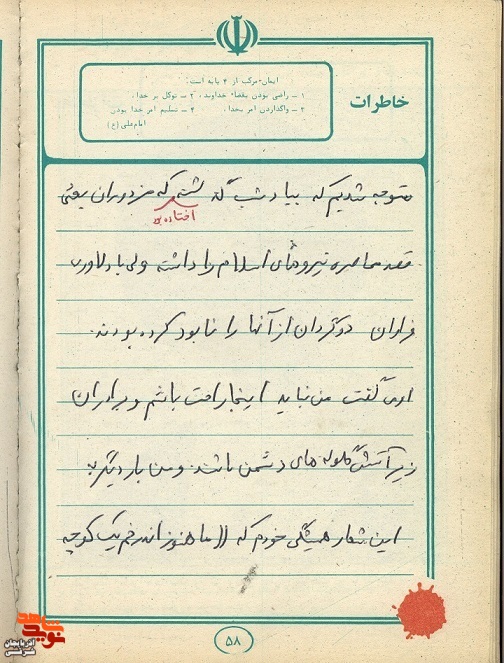 خاطرات
ایمان مرکب از ۴ پایه است:
۱ ــ راضی بودن بقضاء خداوند، ۲ ــ توکل بر خدا،
۳ ــ واگذاردن امر بخدا، ۴ ــ تسلیم امر خدا بودن
امام‌علی (ع)
متوجه شدیم که بیاد شب گذشته که مزدوران بعثی
افتاده بود
قصد محاصره نیروهای اسلام را داشته ولی با دلاوری
فراوان دو گردان از آنها را نابود کرده بودند.
او می‌گفت من نباید اینجا راحت باشم و برادران
زیر آتش گلوله های دشمن باشند و من بار دیگر به
این شعار همیشگی خودم که ((ما هنوز اندر خم یک کوچه
۵۸
نوید شاهد
آذربایجان شرقی